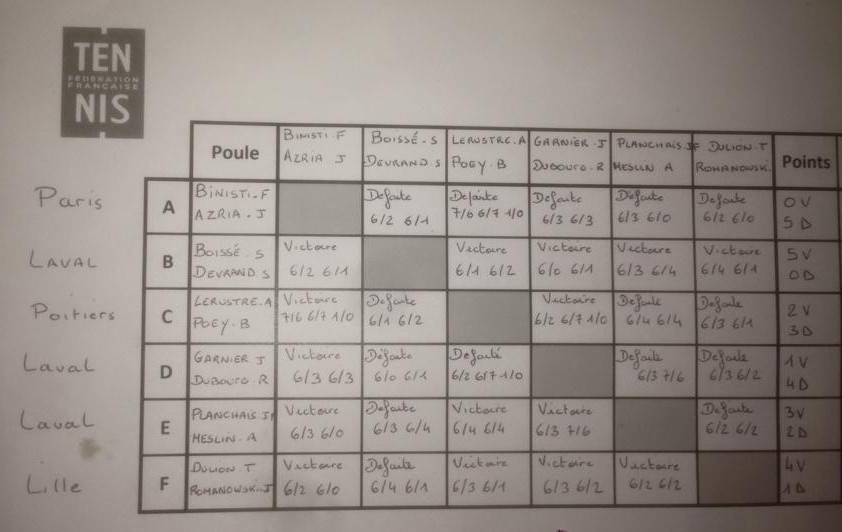 TEN
FÉDÉRATION
FRANÇAISE
NIS
Poule BINISTI.F BOISSÉ.S LERUSTRE.A GARNIER.J PLANCHAIS JF DULION.T Points
AZRIA J DEVRAND.S POEY.B DUBOURG.R MESLIN A ROMANOWSKI.
Paris A BINISTI.F Defaite Defaite Defaite Defaite Defaite 0V
AZRIA.J 6/2 6/1 7/6 6/7 1/0 6/3 6/3 6/3 6/0 6/2 6/0 5D
LAVAL B BOISSÉ.S Victoire Victoire Victoire Victoire Victoire 5V
DEVRAND.S 6/2 6/1 6/1 6/2 6/0 6/1 6/3 6/4 6/4 6/1 0D
Poitiers C LERUSTRE.A Victoire Defaite Victoire Defaite Defaite 2V
POEY.B 7/6 6/7 1/0 6/1 6/2 6/2 6/7 1/0 6/4 6/4 6/3 6/1 3D
Laval D GARNIER J Victoire Défaite Defaite Defaite Defaite 1V
DUBOURG.R 6/3 6/3 6/0 6/1 6/2 6/7 1/0 6/3 7/6 6/3 6/2 4D
Laval E PLANCHAIS JF Victoire Defaite Victoire Victoire Defaite 3V
MESLIN.A 6/3 6/0 6/3 6/4 6/4 6/4 6/3 7/6 6/2 6/2 2D
Lille F DULION T Victoire Defaite Victoire Victoire Victoire 4V
ROMANOWSKI.J 6/2 6/0 6/4 6/1 6/3 6/1 6/3 6/2 6/2 6/2 1D